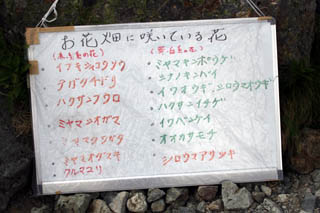 お花畑に咲いている花
(赤・青系の花)
イブキジャコウソウ
アカイチゴリ
ハクサンフウロ
ミヤマシオガマ
ミヤマクワガタ
ミヤマオダマキ
クルマユリ
(黄・白系の花)
ミヤマキンポウゲ
ミヤノキンバイ
イワオウギ、シロウマオウギ
ハクサンイチゲ
イワベンケイ
オオカサモチ
シロウマアサツキ